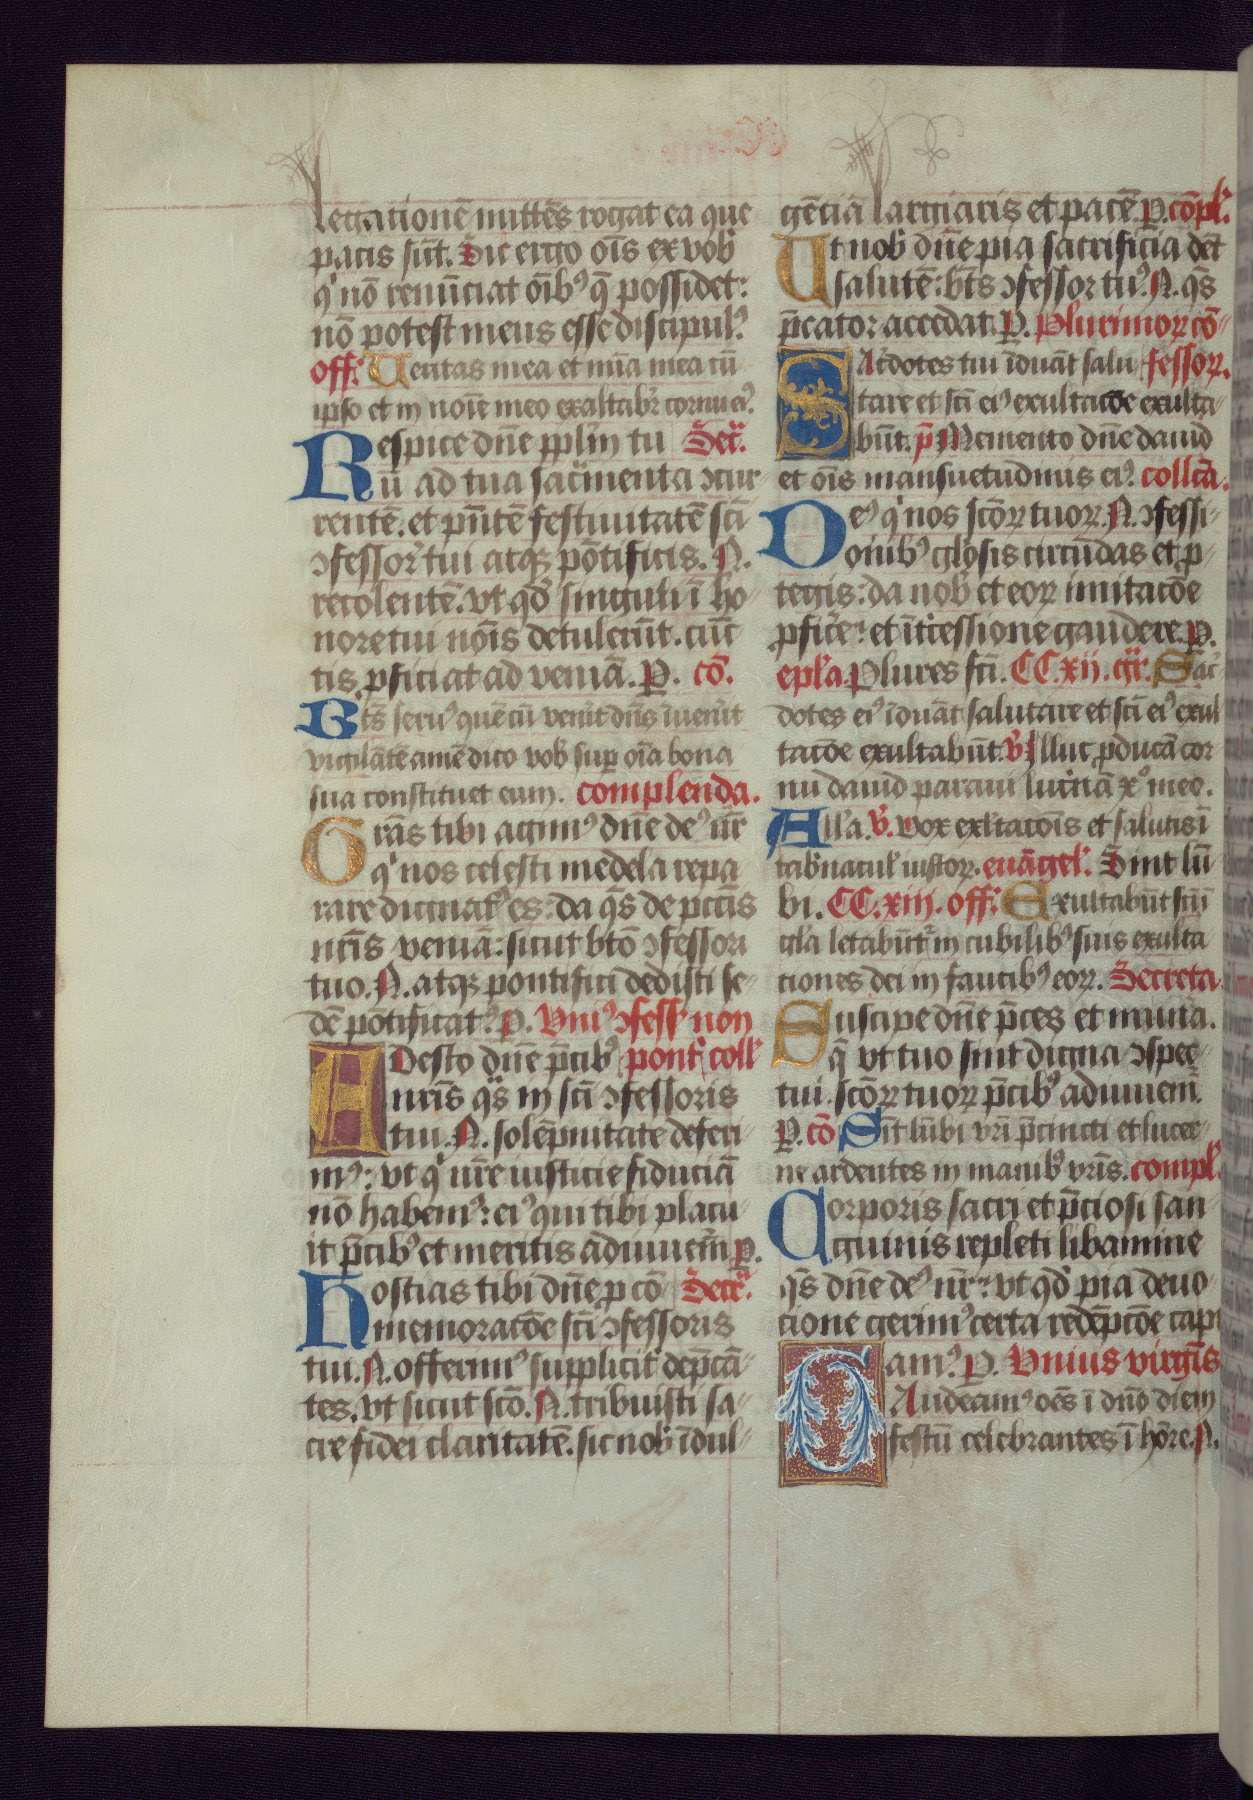 legationē mittēs rogat ea que
pacis sūt. Sic ergo oīs ex vob̾
q̇ nō renūciat oīb⁹ q̄ possidet:
nō potest meus esse discipul⁹.
off̾. Ueritas mea et mīa mea cū
ipso et in noīe meo exaltabit̾ cornu ei⁹.
Respice dn̄e ppl̄m tu Sec̄.
ū ad tua sac̄menta ɔcur-
rentē. et pn̄tē festiuitatē sc̄i
ɔfessor̾ tui atqꝫ pōtificis. N.
recolentē. vt qd̾ singuli ī ho-
nore tui nōis detulerūt. cūc
tis ꝓficiat ad veniā. P. cō.
Bt̄s seru⁹ quē cū ven̾it dn̄s īuen̾it
vigilātē amē dico vob̾ sup̱ oīa bona
sua constituet eum. complenda.
Grās tibi agim⁹ dn̄e de⁹ nr̄
q̇ nos celesti medela repa
rare dignat⁹ es: da q̄s de pccīs
nr̄is veniā: sicut btō ɔfessori
tuo. N. atqꝫ pontifici dedisti se-
dē pōtificat⁹. P. Vni⁹ ɔfess̾ non
Adesto dn̄e p̄cib⁹ pont̾ coll̾
nr̄is q̄s in sc̄i ɔfessoris
tui. N. solēpnitate deferi-
m⁹: vt q̇ nr̄e iusticie fiduciā
nō habem⁹: ei⁹ qui tibi placu-
it p̄cib⁹ et meritis adiuuem̾. P.
Hostias tibi dn̄e ꝓ cō Secr̄.
memoracōe sc̄i ɔfessoris
tui. N. offerim⁹ supplicit̾ dep̄cā-
tes. vt sicut scō. N. tribuisti sa-
cre fidei claritatē. sic nob̾ īdul-
gēciā largiaris et pacē. P. cōpl̾.
Ut nob̾ dn̄e pia sacrificia dēt
salutē: bt̄s ɔfessor tu⁹. N. q̄s
p̄cator accedat. P. Plurimoꝝ cō-
Sac̾dotes tui īduāt salu fessoꝝ.
tare et sc̄i ei⁹ exultacōe exulta-
būt. p̄ Memento dn̄e dauid
et oīs mansuetudinis ei⁹. collcā.
De⁹ q̇ nos scōꝝ tuoꝝ. N. ɔfessi-
onib⁹ gl̾osis circūdas et ꝓ-
tegis: da nob̾ et eoꝝ imitacōe
ꝓfic̾e: et īt̾cessione gaudere. P.
epl̾a. Plures sc̄i. CC.xij. gr̄. Sac̾-
dotes ei⁹ īduāt salutare et sc̄i ei⁹ exul
tacōe exultabūt. v̾ Illuc ꝓducā cor-
nu dauid paraui luc̾nā xp̄o meo.
All̾a. v̾. Vox exl̾tacōis et salutis ī
tab̾nacul̾ iustoꝝ. euāgel̾. Sint lū-
bi. CC.xiij. off̾. Exultabūt scī ī
gl̾a letabūt̾ in cubilib⁹ suis exulta
ciones dei in faucib⁹ eoꝝ. Secreta
Suscipe dn̄e p̄ces et mun̾a.
q̄ vt tuo sint digna ɔspec-
tui. scōꝝ tuoꝝ p̄cib⁹ adiuuem̾.
P. cō Sīt lūbi vr̄i p̄cincti et lucer-
ne ardentes in manib⁹ vr̄is. compl̾.
Corporis sacri et p̄ciosi san-
guinis repleti libamine
q̄s dn̄e de⁹ nr̄: vt qd̾ pia deuo-
cione gerim⁹ certa redēpcōe capi
am⁹. P. Vnius virgīs
Gaudeam⁹ oēs ī dn̄o diem
festū celebrantes ī hōre. N.